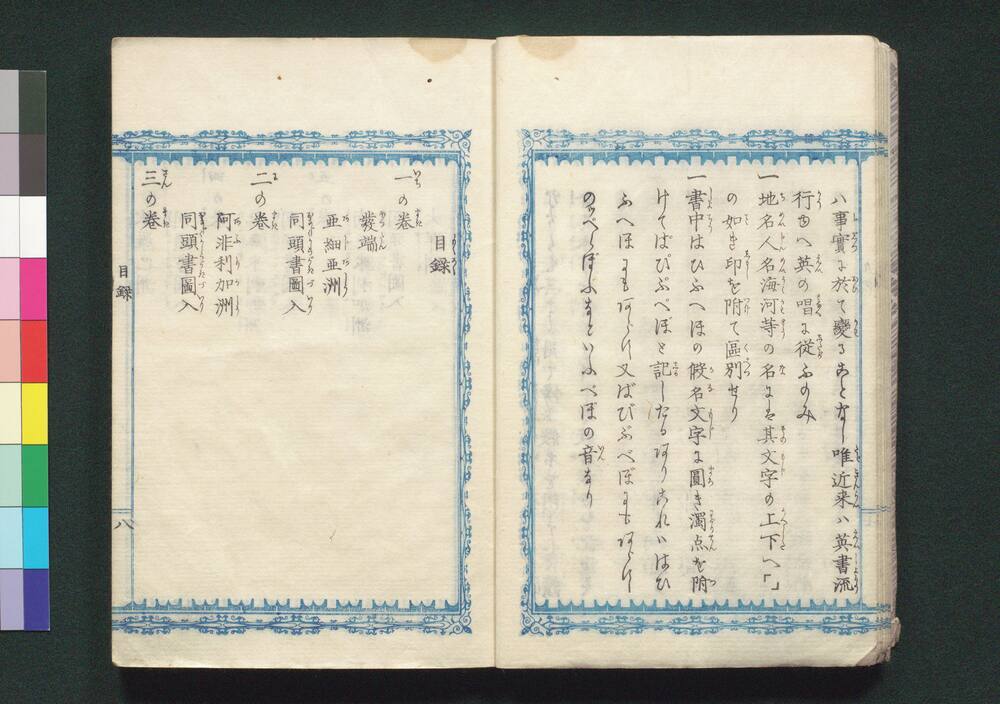 ハ事實に於て變ることなし唯近来ハ英書流
行ゆへ英の唱に從ふのみ
一地名人名海河等の名にハ其文字の上下へ「」
の如き印を附て區別せり
一書中はひふへほの假名文字に圓き濁点を附
けてぱぴぷぺぽと記したるありこれハはひ
ふへほにもあらず又ばびぶべぼにもあらず
のっぺらぽふなどいふぺぽの音なり
目録
一の巻
發端
亜細亜洲
同頭書圖入
二の巻
阿非利加洲
同頭書圖入
三の巻
目録
八